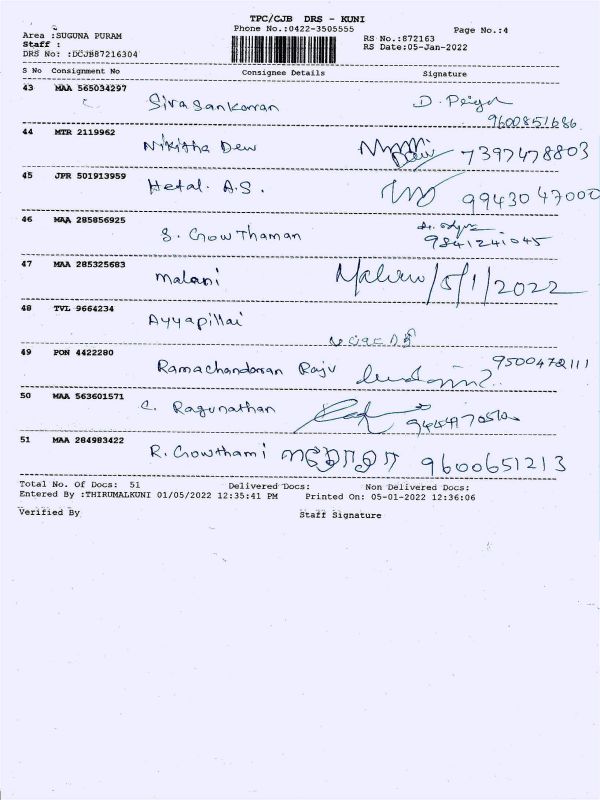 TPC/CJB DRS - KUNI
Phone No.:0422-3505555 Page No.:4
Area :SUGUNA PURAM RS No.:872163
Staff : RS Date:05-Jan-2022
DRS No: :DCJB87216304
S No Consignment No Consignee Details Signature
43 MAA 565034297 Sivasankarran
9600851686
44 MTR 2119962 Nikitha Dew 7397478803
45 JPR 501913959 Hetal. A.S. 9943047000
46 MAA 285856925 S. Gowthaman 9841241045
47 MAA 285325683 Malani /5/1/2022
48 TVL 9664234 Ayyapillai
49 PON 4422280 Ramachandaran Raju
50 MAA 563601571 C. Ragunathan
51 MAA 284983422 R. Gowthami 9600651213
Total No. Of Docs: 51 Delivered Docs: Non Delivered Docs:
Entered By :THIRUMALKUNI 01/05/2022 12:35:41 PM Printed On: 05-01-2022 12:36:06
Verified By Staff Signature